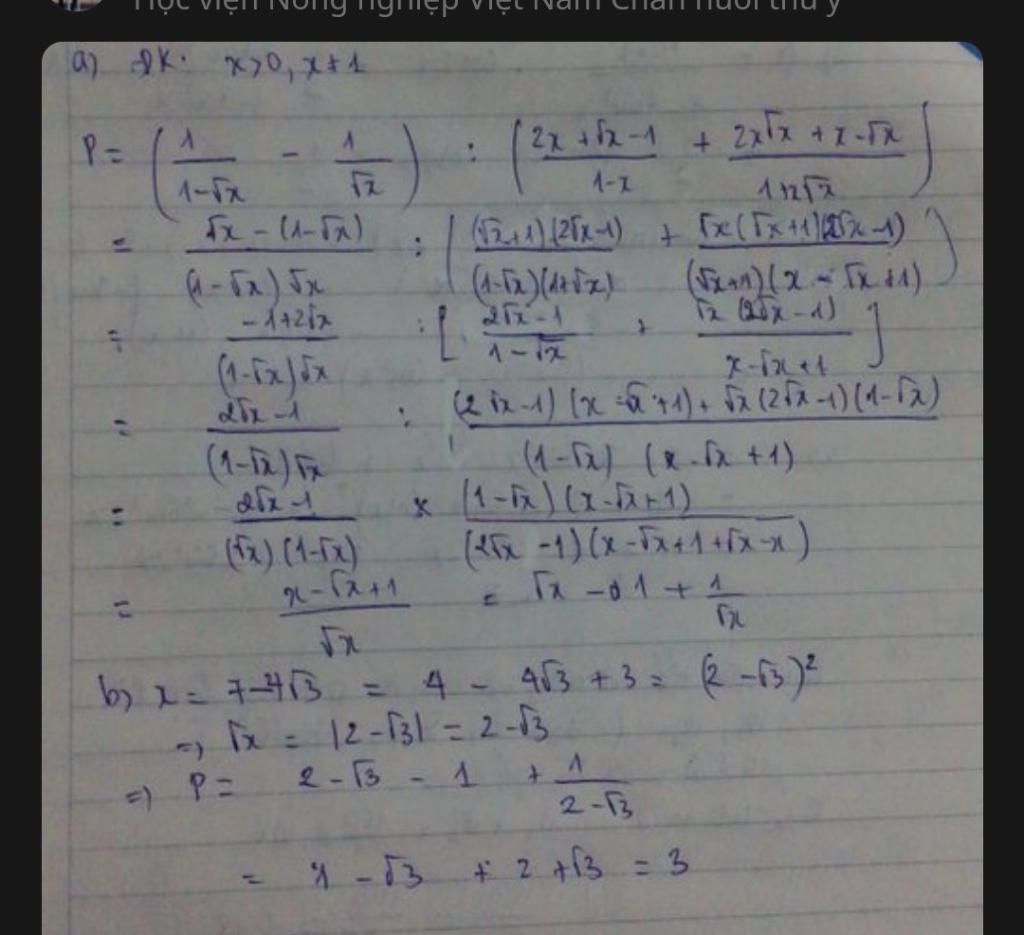 Học viện Nông nghiệp Việt Nam Chăn nuôi thú y
a) ĐK: x>0, x≠1
P = (1/(1-√x) - 1/√x) : [(2x+√x-1)/(1-x) + (2x√x+x-√x)/(1+x√x)]
= (√x-(1-√x))/((1-√x)√x) : [((√x+1)(2√x-1))/((1-√x)(1+√x)) + (√x(√x+1)(2√x-1))/((√x+1)(x-√x+1))]
= (-1+2√x)/((1-√x)√x) : [(2√x-1)/(1-√x) + (√x(2√x-1))/(x-√x+1)]
= (2√x-1)/((1-√x)√x) : ((2√x-1)(x-√x+1)+√x(2√x-1)(1-√x))/((1-√x)(x-√x+1))
= (2√x-1)/((√x)(1-√x)) × ((1-√x)(x-√x+1))/((2√x-1)(x-√x+1+√x-x))
= (x-√x+1)/√x = √x - 1 + 1/√x
b) x = 7-4√3 = 4 - 4√3 + 3 = (2-√3)²
=> √x = |2-√3| = 2-√3
=> P = 2-√3 - 1 + 1/(2-√3)
= 1 - √3 + 2 + √3 = 3